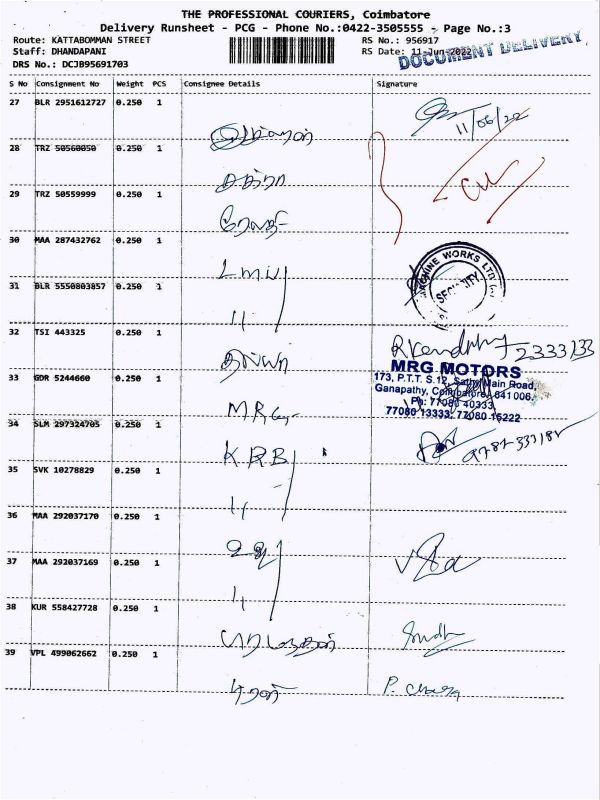 THE PROFESSIONAL COURIERS, Coimbatore
Delivery Runsheet - PCG - Phone No.:0422-3505555 - Page No.:3
Route: KATTABOMMAN STREET
RS No.: 956917
Staff: DHANDAPANI
RS Date: 11-Jun-2022
DRS No.: DCJB95691703
DOCUMENT DELIVERY
S No Consignment No Weight PCS Consignee Details Signature
27 BLR 2951612727 0.250 1
11/06/22
28 TRZ 50560050 0.250 1
29 TRZ 50559999 0.250 1
ரேவதி
30 MAA 287432762 0.250 1
LMW
MACHINE WORKS LTD
SECURITY
31 BLR 5550803857 0.250 1
11
32 TSI 443325 0.250 1
திவ்யா
2333133
33 GDR 5244660 0.250 1
MRG MOTORS
173, P.T.T. S.12, Sathy Main Road,
Ganapathy, Coimbatore, 641 006.
Ph: 77080 40333
77080 13333, 77080 15222
34 SLM 297324705 0.250 1
KRB
35 SVK 10278829 0.250 1
11
36 MAA 292037170 0.250 1
37 MAA 292037169 0.250 1
11
38 KUR 558427728 0.250 1
39 VPL 499062662 0.250 1